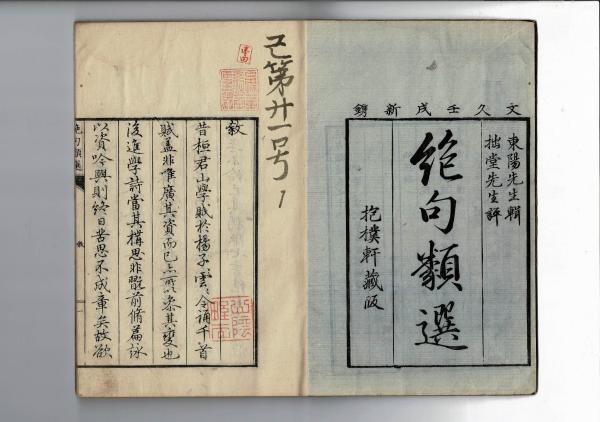 文久壬戌新鐫
東陽先生輯
拙堂先生評
絶句類選
抱樸軒藏版
己第廿一号
1
敍
昔桓君山學賦於揚子雲令誦千首
賦蓋非唯廣其資而已亦以參其變也
後進學詩當其構思非翫前脩篇詠
以資吟興則終日苦思不成章矣故欲
絶句類選
敍